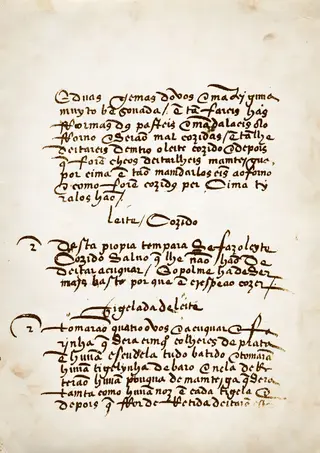 E duas gemas dovos E mãtiguisa
muyto bẽ sovada / E tã fareis hũas
Formas de pasteis E mãdalaeis ao
Forno E serão mal cozidas / E tã lhe
deitareis dentro o leite cozido E depois
q̃ forẽ cheos deitarlheis mamteygua
por cima E tã mandarlos eis ao forno
E como forẽ cozidos per Sima ty
ralos hão /
leite / Cozido
2 desta propia tempara se faz o leite
Cozido Salvo q̃ lhe não hão de
deitar acuquar / E o polme ha de ser
mais basto por que
Tigelada de leite
2 tomarão quatro ovos E acuquar E fa
rinha q̃ sera cimq̃ colheres de prata
E huũa escudela tudo batido E tomarã
huũa tigelynha de baro E nela de Re
terão huũa pouqua de mamteyga q̃ sera
tamta como huũa noz E cada tigela E
depois q̃ for de Retida deitarã